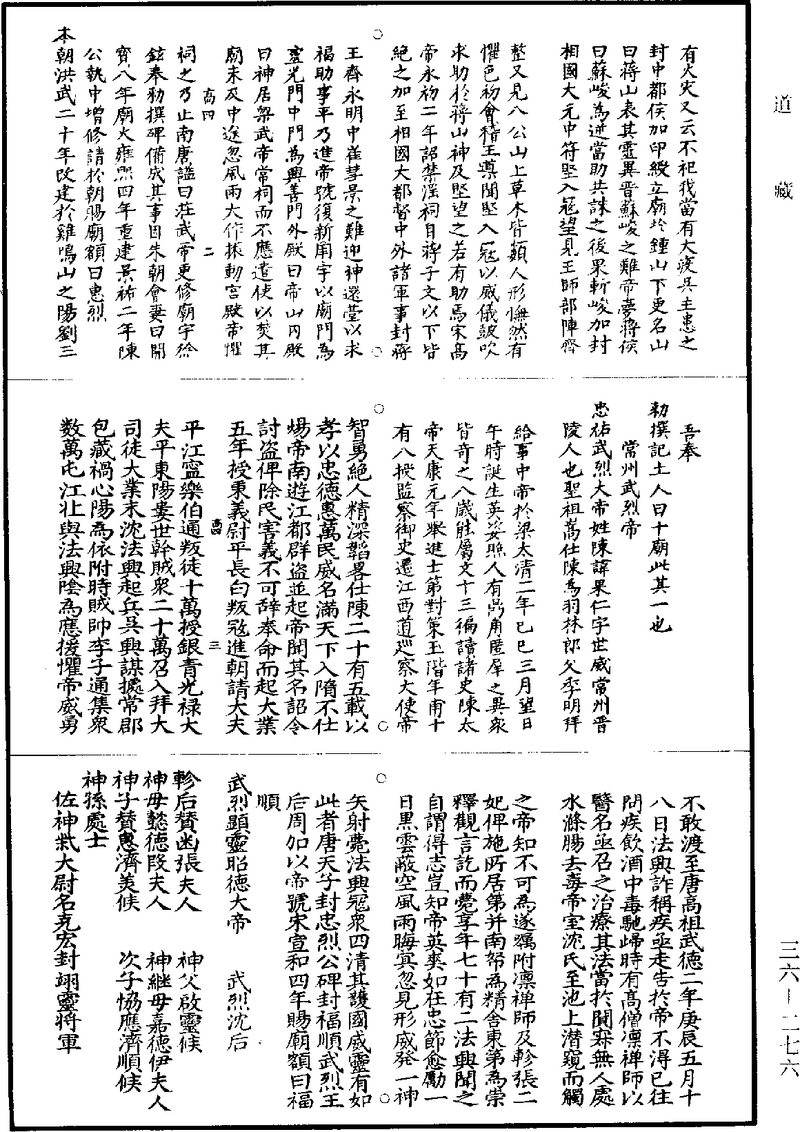 道藏
有火灾又云不祀我當有大疫吳主患之
封中都侯加印綬立廟於鍾山下更名山
曰蔣山表其靈異晉蘇峻之難帝夢蔣侯
曰蘇峻為逆當助共誅之後果斬峻加封
相國大元中符堅入寇望見王師部陣齊
整又見八公山上草木皆類人形憮然有
懼色初會稽王導聞堅入寇以威儀鼓吹
求助於蔣山神及堅望之若有助焉宋高
帝永初二年詔禁淫祠自蔣子文以下皆
絕之加至相國大都督中外諸軍事封蔣
王齊永明中崔彗景之難迎神還臺以求
福助事平乃進帝號復新廟宇以廟門為
靈光門中門為興善門外殿曰帝山內殿
曰神居梁武帝常祠而不應遣使以焚其
廟未及中途忽風雨大作振動宮殿帝懼
高四 二
祠之乃止南唐謚曰莊武帝更修廟宇徐
鉉奉勑撰碑備成其事國朝會要曰開
寶八年廟火雍熙四年重建景祐二年陳
公執中增修請於朝賜廟額曰惠烈
本朝洪武二十年改建於雞鳴山之陽劉三
吾奉
勑撰記土人曰十廟此其一也
常州武烈帝
忠祐武烈大帝姓陳諱果仁字世威常州晉
陵人也聖祖嵩仕陳為羽林郎父季明拜
給事中帝於梁太清二年己巳三月望日
午時誕生英姿縣人有禼角匿犀之異衆
皆奇之八歲能屬文十三徧讀諸史陳太
帝天康元年舉進士第對策玉階年甫十
有八授監察御史遷江西道巡察大使帝
智勇絕人精深韜畧仕陳二十有五載以
孝以忠德惠萬民威名滿天下入隋不仕
煬帝南遊江都群盜並起帝聞其名詔令
討盜俾除民害義不可辞奉命而起大業
五年授秉義尉平長白叛寇進朝請大夫
高四 三
平江寧樂伯通叛徒十萬授銀青光祿大
夫平東陽婁世幹賊衆二十萬召入拜大
司徒大業末沈法興起兵吳興謀據常郡
包藏禍心陽為依附時賊帥李子通集衆
数萬屯江北與法興陰為應援懼帝威勇
不敢渡至唐高祖武德二年庚辰五月十
八日法興詐稱疾亟走告於帝不得已往
問疾飲酒中毒馳歸時有高僧凛禅師以
醫名亟召之治療其法當於闃寂無人處
水滌腸去毒帝室沈氏至池上潜窺而觸
之帝知不可為遂囑附凛禅師及軫張二
妃俾施所居第并南帑為精舍東第為崇
釋觀言訖而薨享年七十有二法興聞之
自謂得志豈知帝英爽如在忠節愈勵一
日黑雲蔽空風雨晦冥忽見形威發一神
矢射斃法興寇衆四清其護國威靈有如
此者唐天子封忠烈公碑封福順武烈王
后周加以帝號宋宣和四年賜廟額曰福
順
武烈顯靈昭德大帝 武烈沈后
軫后賛幽張夫人 神父啟靈候
神母懿德段夫人 神継母嘉德伊夫人
神子賛惠濟美候 次子恊應濟順候
神孫處士
佐神柴大尉名克宏封翊靈將軍
三六—二七六